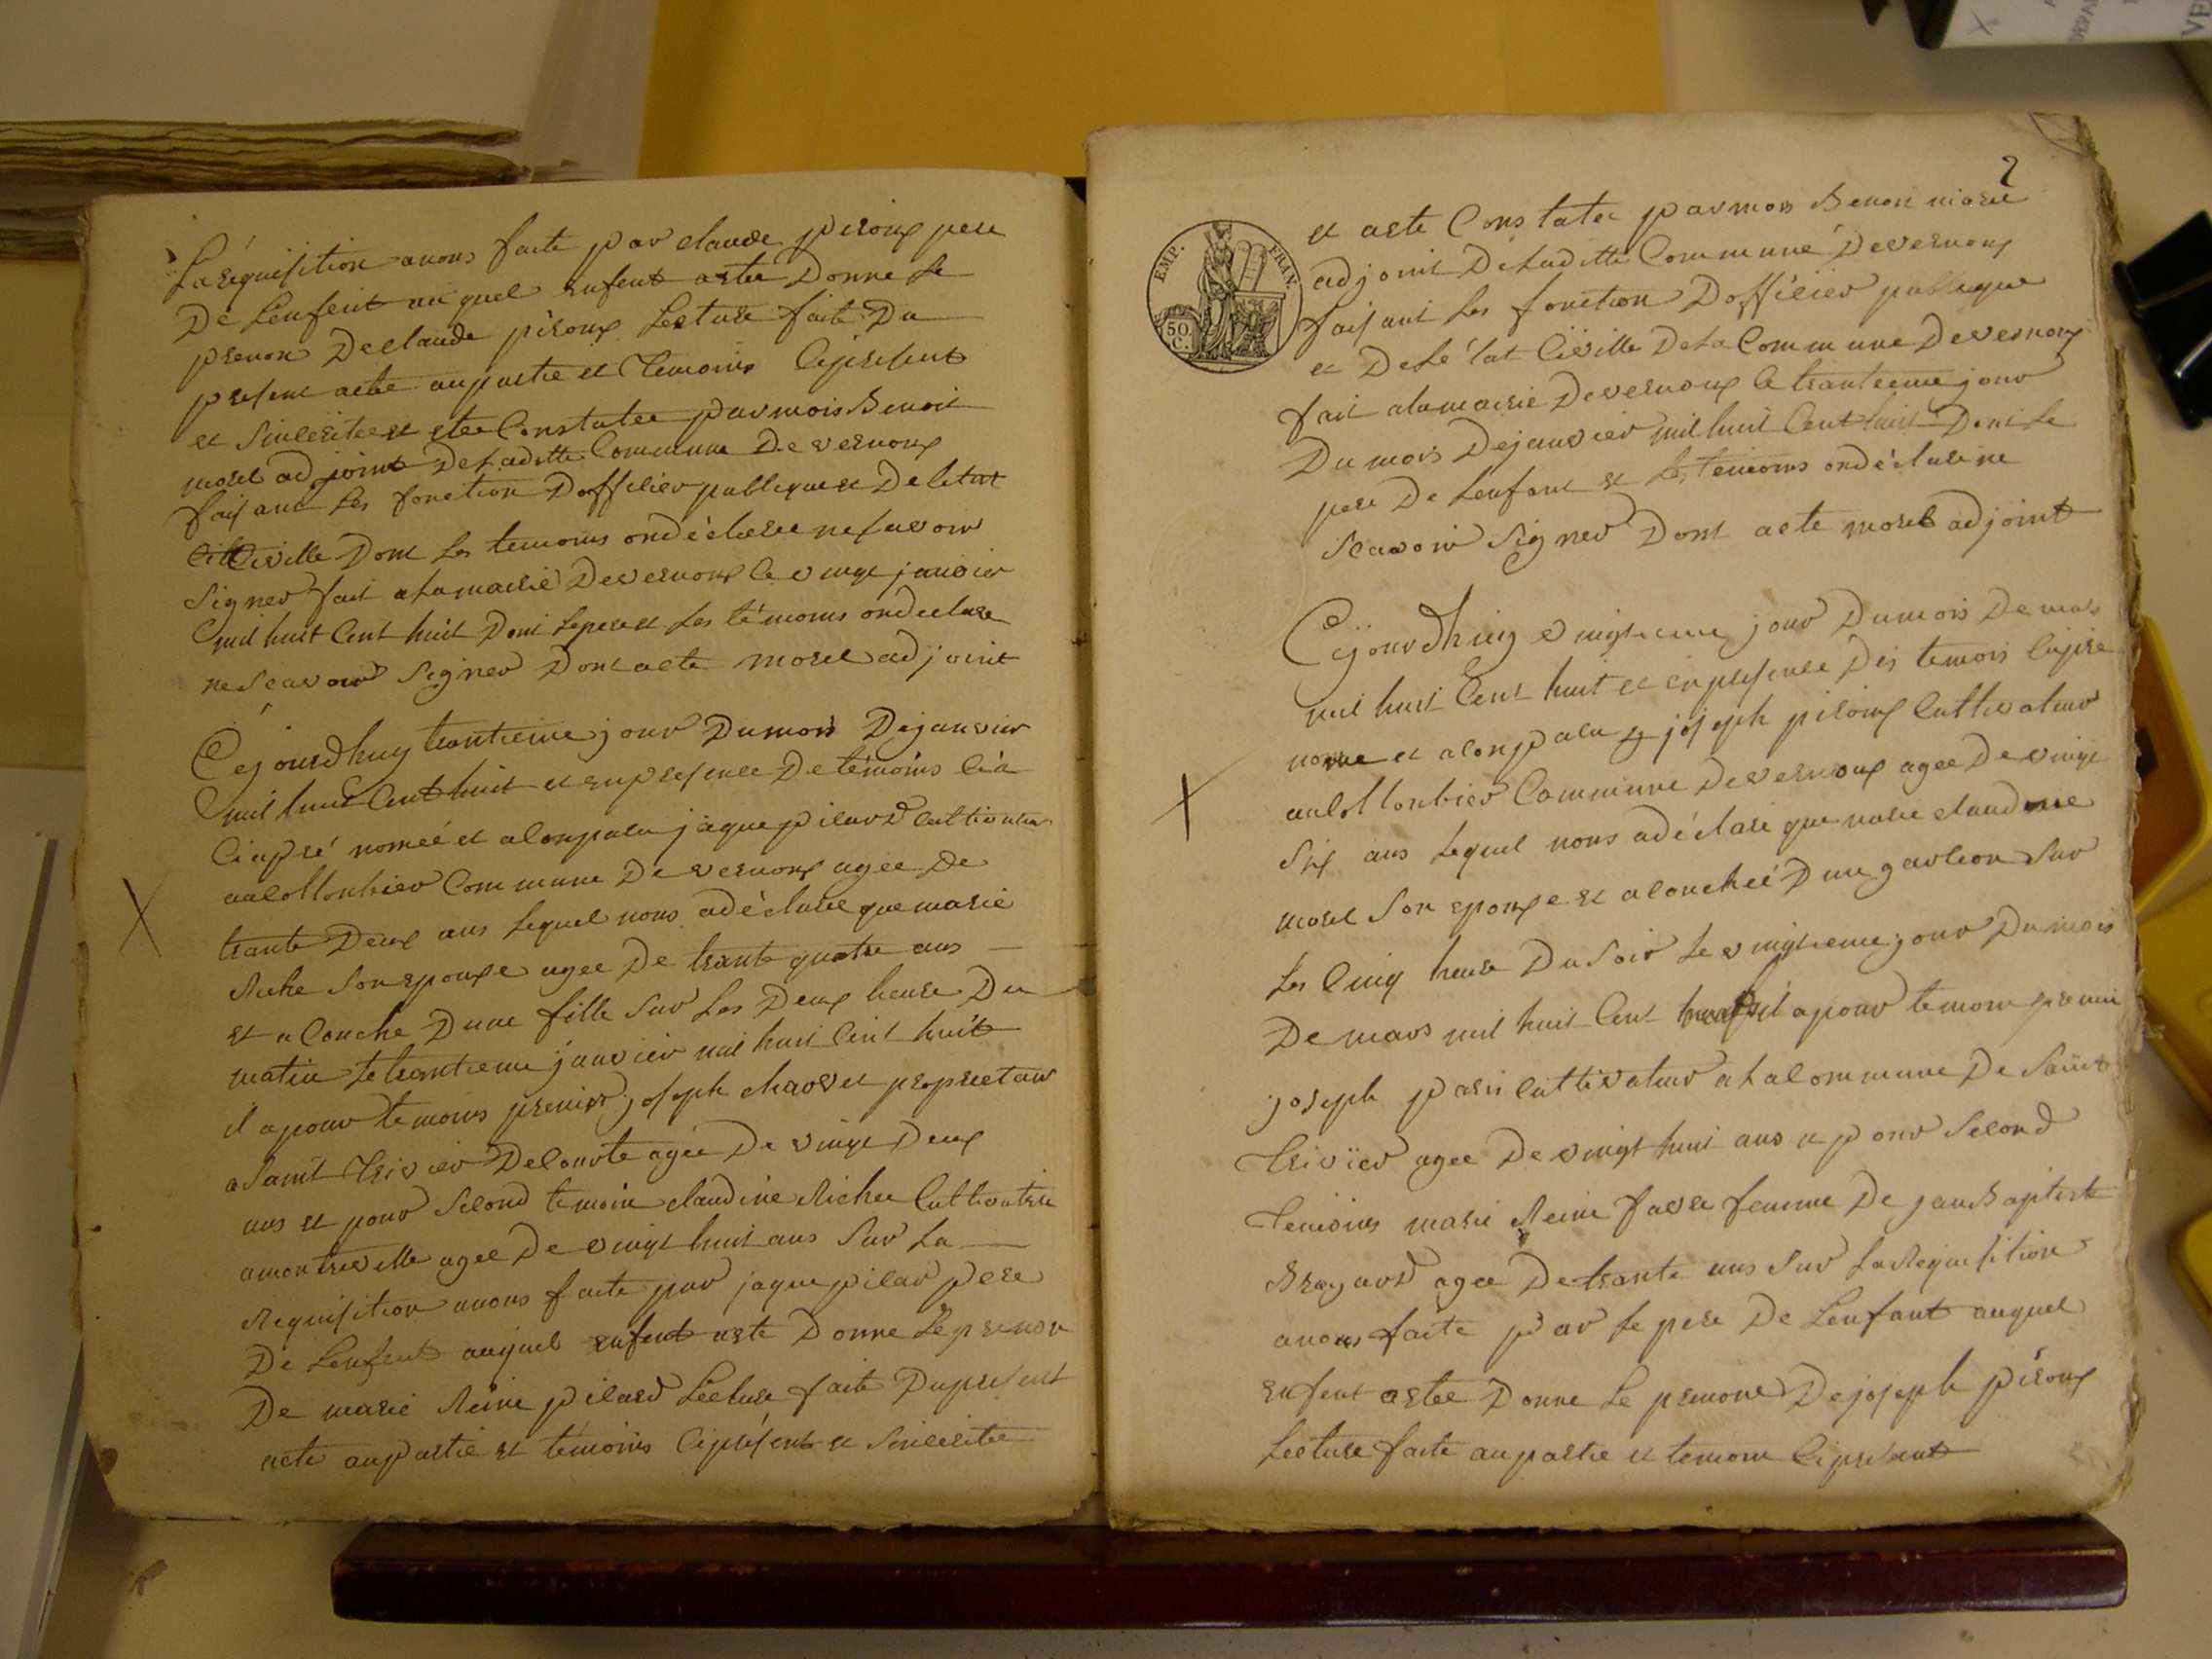 Laréquisition anous faite par claude piroux pere
De Lenfent auquel enfent aetee Donne Le
prenon Declaude piroux Lecture faite Du
present acte aupartie et Temoins Cipresent
et Sinceritee et etee Constatee parmois Benoit
morel adjoint DeLaditte Commune De vernoux
faisant Les fonction Dofficier publique et De letat
Civille Dont Les temoins ondéclaree nesavoir
Signer fait alamairie Devernoux le vingt janvier
mil huit Cent huit Dont Lepere et Les témoins ondeclare
ne Scavoir Signer Dont acte morel adjoint
Cejourdhuy trantieme jour Dumois Dejanvier
mil huit Cent huit et enpresence De témoins Cia
Ciapré nomeé et alonparu jaque pilard Cultivateur
aucollonbier Commune De vernoux agée De
trante Deux ans Lequel nous adéclaré que marie
Riche Son epouxe agee De trante quatre ans
et acouche Dune fille Sur Les Deux heure Du
matin le trantieme janvier mil huit Cent huit
il apour temoins premier joseph charvet propriétair
a Saint Trivier Decourte agée De vingt Deux
ans et pour Second temoin claudine Richee Cultivatrice
amontrevelle agee De vingt huit ans Sur La
Requisition anous faite par jaque pilar pere
De Lenfent auquel enfent aete Donne Leprenon
De marie Reine pilard Lecture faite Dupresent
acte aupartie et témoins Cipresent et Sinceritee
2
EMP. FRAN.
50 C.
et aete Constatee parmois Benoit morel
adjoint DeLaditte Commune Devernoux
faisant Les fonction Dofficier publique
et DeLétat Civille DeLa Commune Devernoux
fait alamairie Devernoux le trantieme jour
Du mois Dejanvier mil huit Cent huit Dont Le
pere De Lenfant et Les temoins ondéclare ne
Scavoir Signer Dont acte morel adjoint
Cejourdhuy vingtieme jour Dumois De mars
mil huit Cent huit et enpresence Des temois Ciapre
nomme et alonparu joseph piroux Cultivateur
aucollonbier Commune Devernoux agee De vingt
Six ans Lequel nous adéclaré que marie claudine
morel Son epouxe et acouchéé Dun garcon Sur
Les Cinq heure Du Soir Le vingtieme jour Dumois
De mars mil huit Cent huit il apour temoin premier
joseph parri Cultivateur a Lacommune De Saint
Trivier agee De vingt huit ans et pour Second
Temoins marie Reine favre femme De janBaptiste
Bragard agee De trante ans Sur La Requisition
anous faite par Le pere De Lenfant auquel
enfent aetee Donne Le prenon De joseph piroux
Lecture faite aupartie et temoin Cipresent